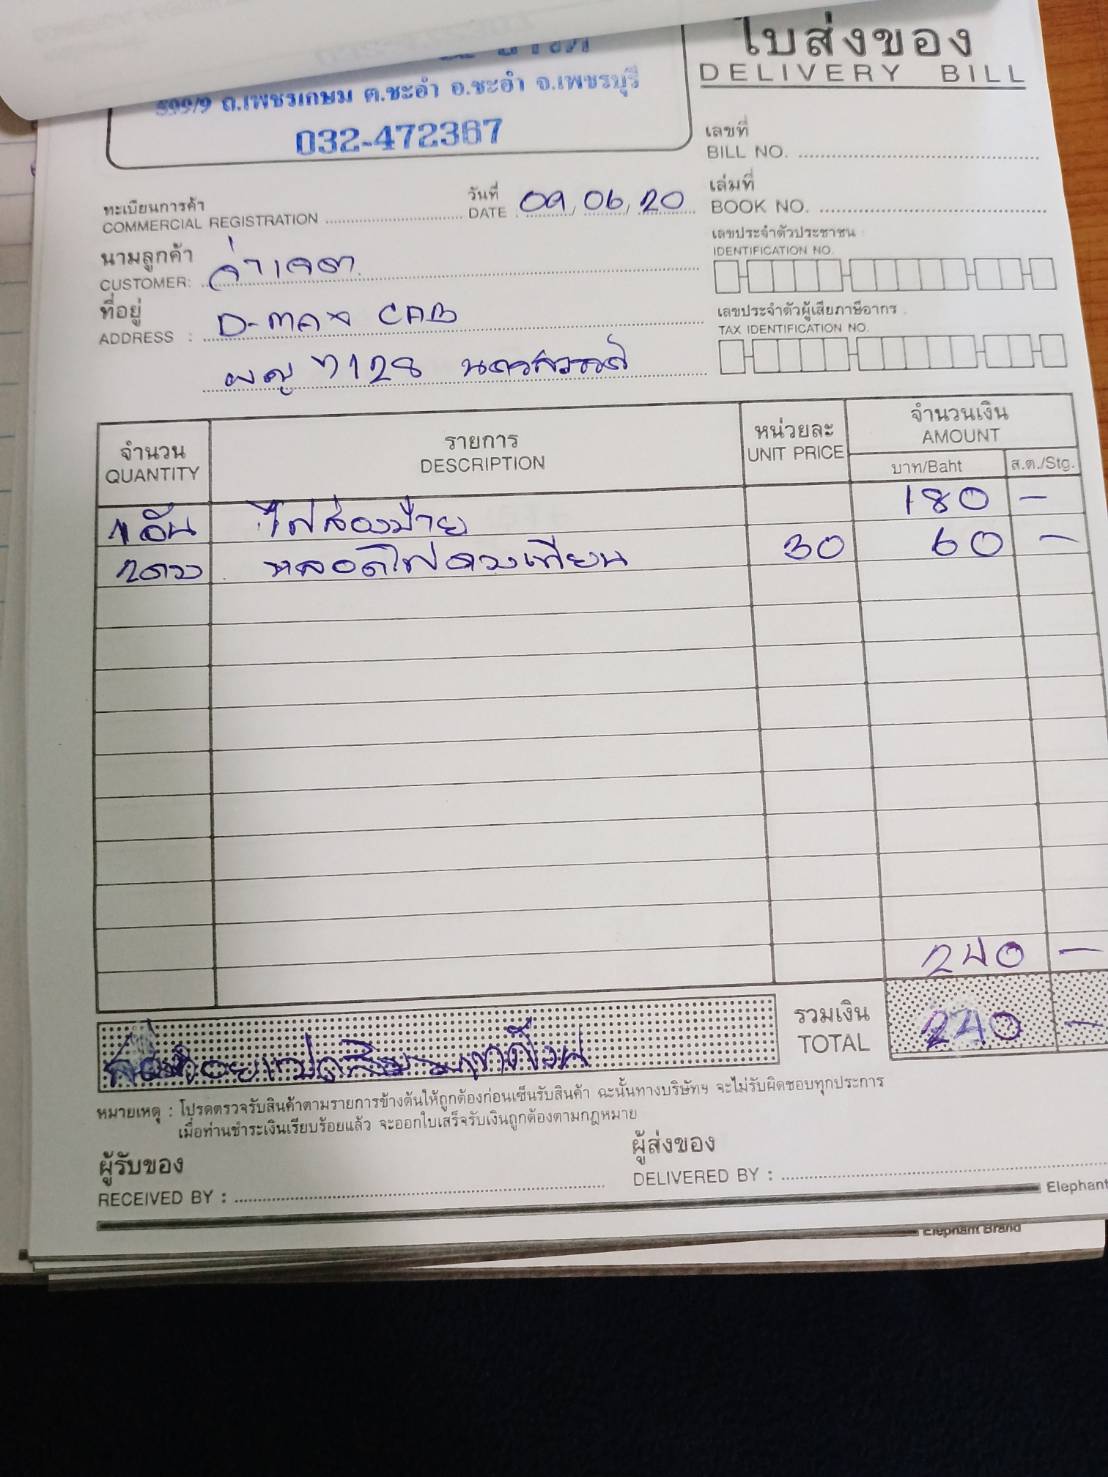 ใบส่งของ
DELIVERY BILL
599/9 ถ.เพชรเกษม ต.ชะอำ อ.ชะอำ จ.เพชรบุรี
032-472367
เลขที่
BILL NO.
ทะเบียนการค้า
COMMERCIAL REGISTRATION
วันที่
DATE 09, 06, 20
เล่มที่
BOOK NO.
นามลูกค้า
CUSTOMER: จ่าเจตา
เลขประจำตัวประชาชน
IDENTIFICATION NO.
ที่อยู่
ADDRESS : D-max CAB
เลขประจำตัวผู้เสียภาษีอากร
TAX IDENTIFICATION NO.
ผญ 7128 นครสวรรค์
จำนวน
QUANTITY
รายการ
DESCRIPTION
หน่วยละ
UNIT PRICE
จำนวนเงิน
AMOUNT
บาท/Baht
ส.ต./Stg.
1 อัน ไฟส่องป้าย 180 -
2ดวง หลอดไฟดวงเทียน 30 60 -
240 -
รวมเงิน
TOTAL 240 -
หมายเหตุ : โปรดตรวจรับสินค้าตามรายการข้างต้นให้ถูกต้องก่อนเซ็นรับสินค้า ฉะนั้นทางบริษัทฯ จะไม่รับผิดชอบทุกประการ
เมื่อท่านชำระเงินเรียบร้อยแล้ว จะออกใบเสร็จรับเงินถูกต้องตามกฎหมาย
ผู้รับของ
RECEIVED BY :
ผู้ส่งของ
DELIVERED BY :
Elephant
Elephant Brand